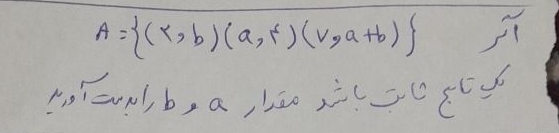 اگر A = {(۲,b)(a,۴)(۷,a+b)}
یک تابع ثابت باشد مقدار a و b را بدست آورید